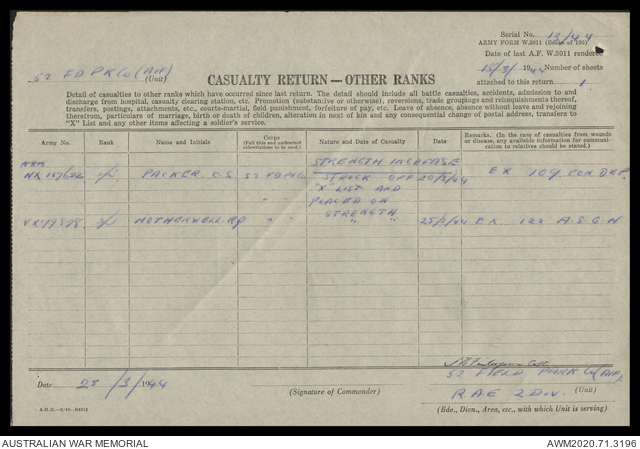 Serial No. 13/44
ARMY FORM W.3011 (Books of 100)
Date of last A.F. W.3011 rendered
18/3/1944 Number of sheets
attached to this return 1
52 FD PK Co (AIF) (Unit)
CASUALTY RETURN—OTHER RANKS
Detail of casualties to other ranks which have occurred since last return. The detail should include all battle casualties, accidents, admission to and
discharge from hospital, casualty clearing station, etc. Promotion (substantive or otherwise), reversions, trade groupings and relinquishments thereof,
transfers, postings, attachments, etc., courts-martial, field punishment, forfeiture of pay, etc. Leave of absence, absence without leave and rejoining
therefrom, particulars of marriage, birth or death of children, alteration in next of kin and any consequential change of postal address, transfers to
"X" List and any other items affecting a soldier's service.
Army No. Rank Name and Initials Corps (Full title and authorized abbreviations to be used.) Nature and Date of Casualty Date Remarks. (In the case of casualties from wounds or disease, any available information for communication to relatives should be stated.)
STRENGTH INCREASE
PACKER C.S 52 FD PK Co STRUCK OFF 20/3/44 EX 109 CON DEP.
" " "X" LIST AND
PLACED ON
STRENGTH
MOTHERWELL R.P " " " " 25/3/44 EX 122 A.S.G.H
52 FIELD PARK Co (AIF)
Date 25/3/1944 (Signature of Commander) (Unit)
R.A.E 2 DIV.
(Bde., Divn., Area, etc., with which Unit is serving)
AUSTRALIAN WAR MEMORIAL
AWM2020.71.3196